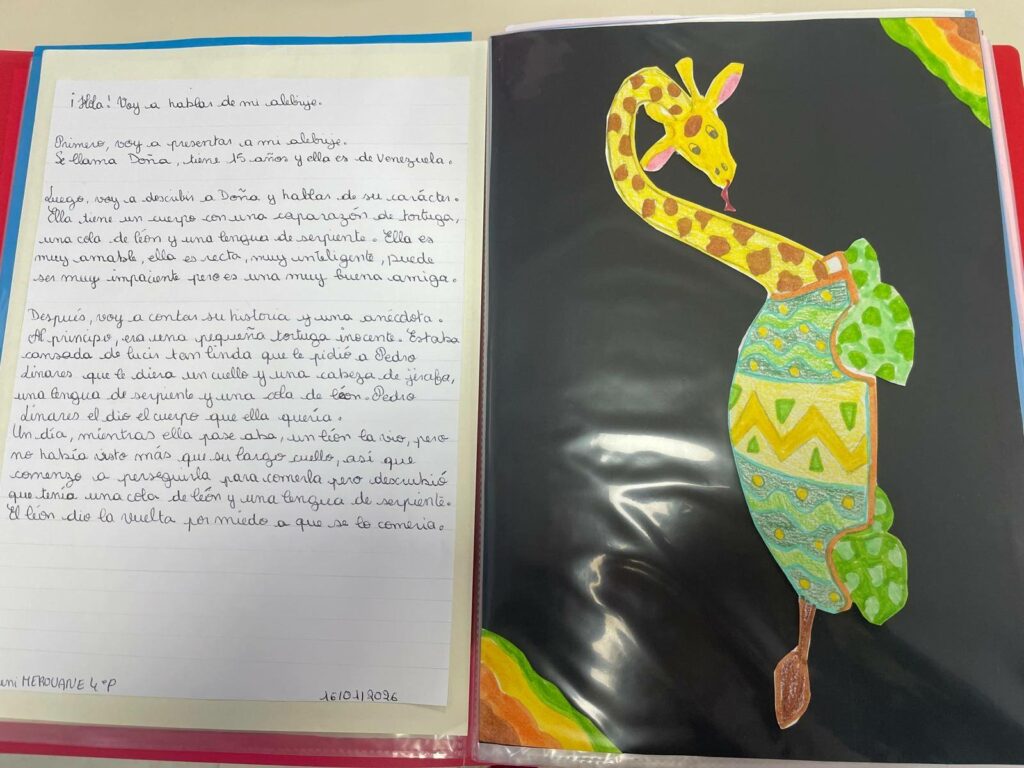 ¡Hola! Voy a hablar de mi alebrije.
Primero, voy a presentar a mi alebrije.
Se llama Doña, tiene 15 años y ella es de Venezuela.
Luego, voy a describir a Doña y hablar de su carácter.
Ella tiene un cuerpo con una caparazón de tortuga,
una cola de león y una lengua de serpiente. Ella es
muy amable, ella es recta, muy inteligente, puede
ser muy impaciente pero es una muy buena amiga.
Después, voy a contar su historia y una anécdota.
Al principo, era una pequeña tortuga inocente. Estaba
cansada de lucir tan linda que le pidió a Pedro
Linares que le diera un cuello y una cabeza de jirafa,
una lengua de serpiente y una cola de león. Pedro
Linares el dio el cuerpo que ella quería.
Un día, mientras ella pase aba, un león la vio, pero
no había visto más que su largo cuello, así que
comenzo a perseguirla para comerla pero descubrió
que tenía una cola de león y una lengua de serpiente.
El león dio la vuelta por miedo a que se lo comeria.
MEROUANE 4°P
16/01/2026